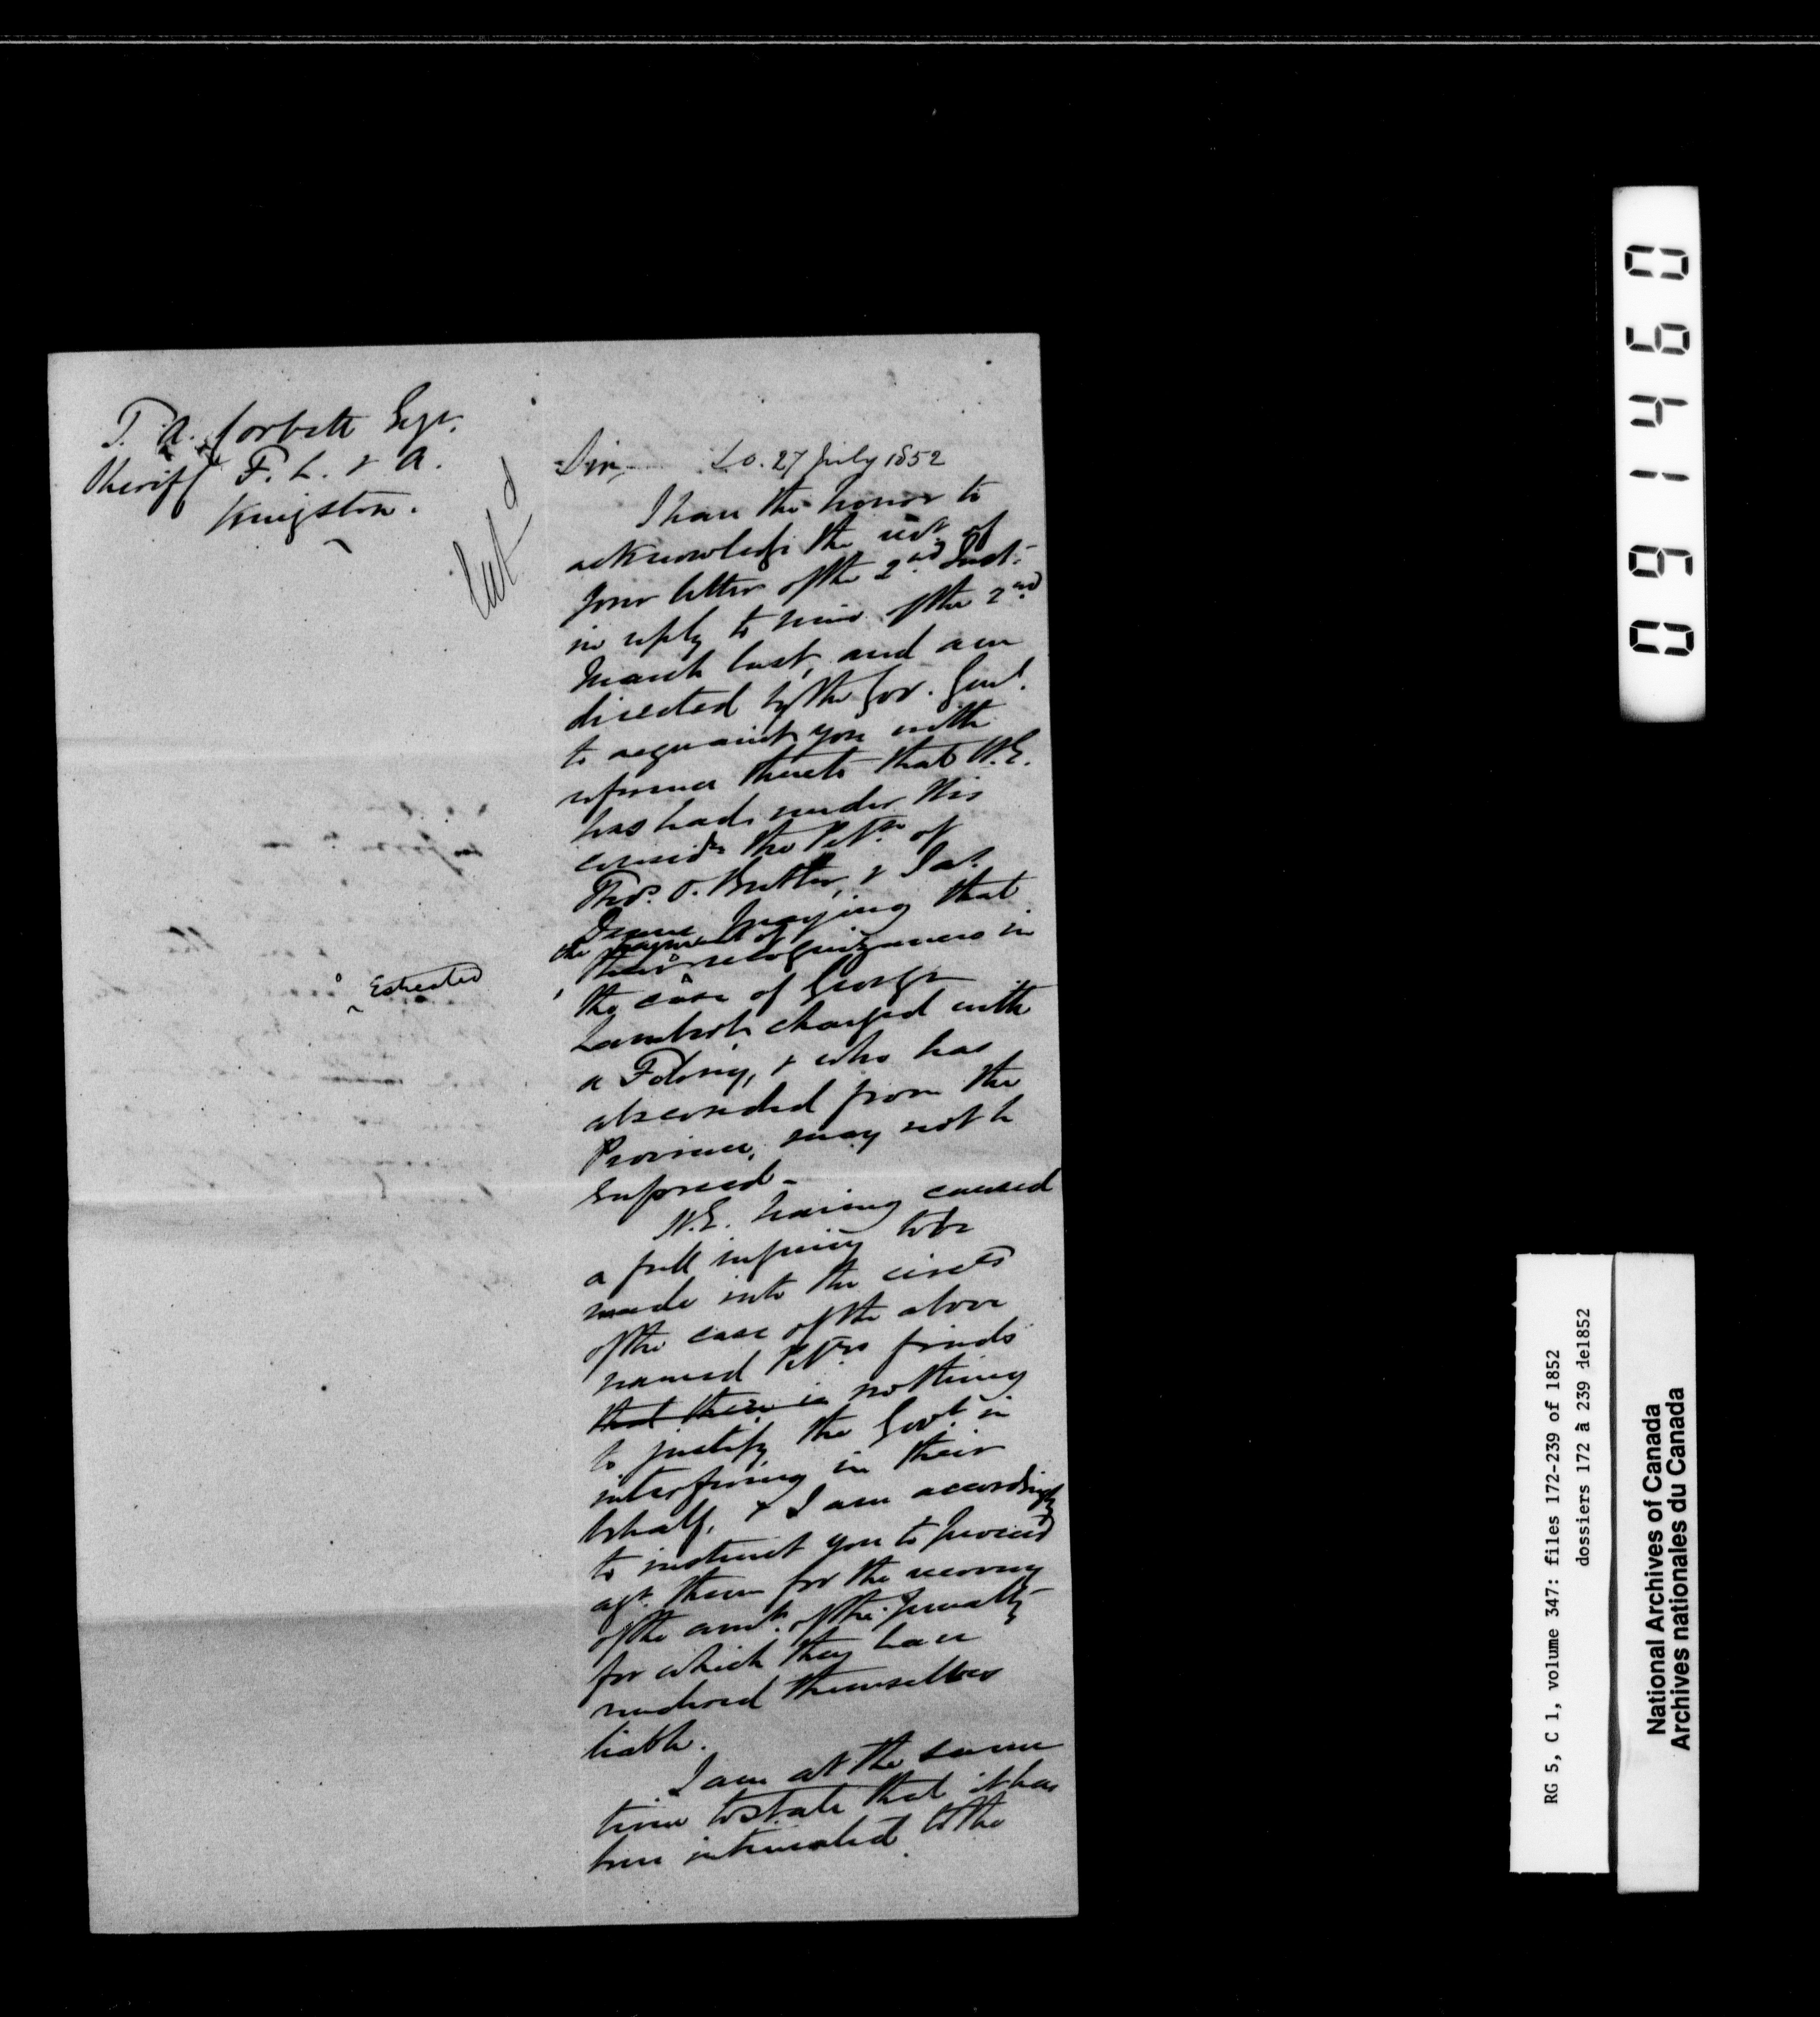 T. A. Corbett Esqr.
Sheriff F. L. & A.
Kingston.
Ent'd
Sir, S.O. 27 July 1852
I have the honor to
acknowledge the rect. of
your letter of the 2nd Inst.
in reply to mine of the 2nd
March last, and am
directed by the Gov. Genl.
to acquaint you with
reference thereto that H.E.
has had under His
considn the Petn. of
Thos. O. Butler, & Jas.
praying that
the payment of
their recognizances in
Estreated
the case of George
Lambert charged with
a Felony, & who has
absconded from the
Province, may not be
enforced -
H.E. having caused
a full inquiry to be
made into the circes
of the case of the above
named Petrs. finds
that there is nothing
to justify the Govt. in
interfering in their
behalf, & I am accordingly
to instruct you to proceed
agt. them for the recovery
of the amt. of the penalty
for which they have
rendered themselves
liable.
I am at the same
time to state that it has
been intimated to the
091460
RG 5, C 1, volume 347: files 172-239 of 1852
dossiers 172 à 239 de1852
National Archives of Canada
Archives nationales du Canada